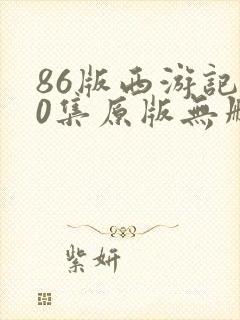 86版西游記
0集原版無
紫妍